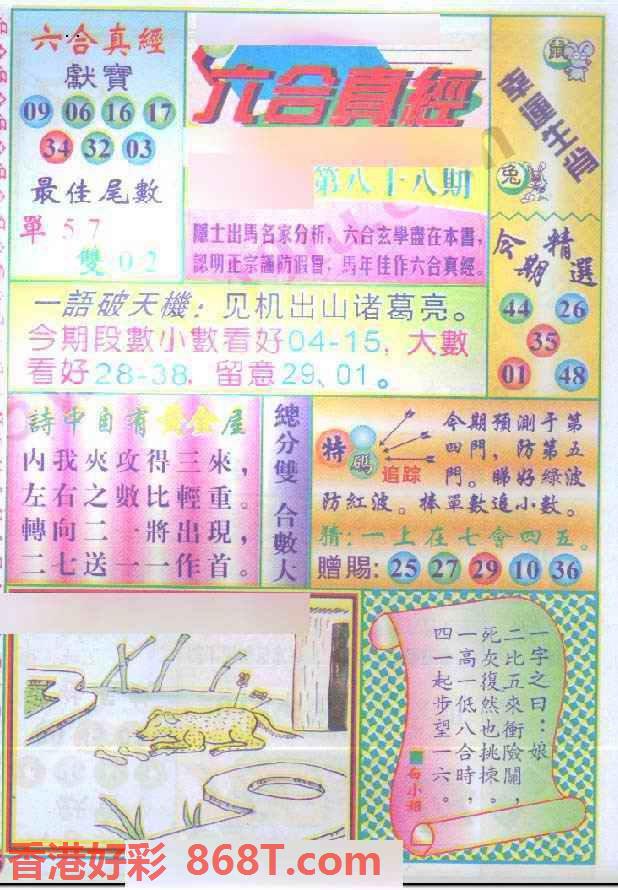 六合真經
獻寶
09 06 16 17
34 32 03
最佳尾數
單 5 7
雙 0 2
六合真經
第八十八期
隱士出馬名家分析，六合玄學盡在本書，
認明正宗謹防假冒，馬年佳作六合真經。
鼠
幸運生肖
兔
今期精選
44 26
35
01 48
一語破天機：见机出山诸葛亮。
今期段數小數看好04-15，大數
看好28-38，留意29、01。
詩中自有黃金屋
內我夾攻得三來，
左右之數比輕重。
轉向二一將出現，
二七送一一作首。
總分雙 合數大
特碼
追踪
今期預測于第
四門，防第五
門。睇好綠波
防紅波。捧單數追小數。
猜：一上在七會四五。
贈賜：25 27 29 10 36
一字之曰：娘
二比五來衝險關，
死灰復然也挑揀。
一高一低八合時，
四一起步望一六。
香港好彩 868T.com